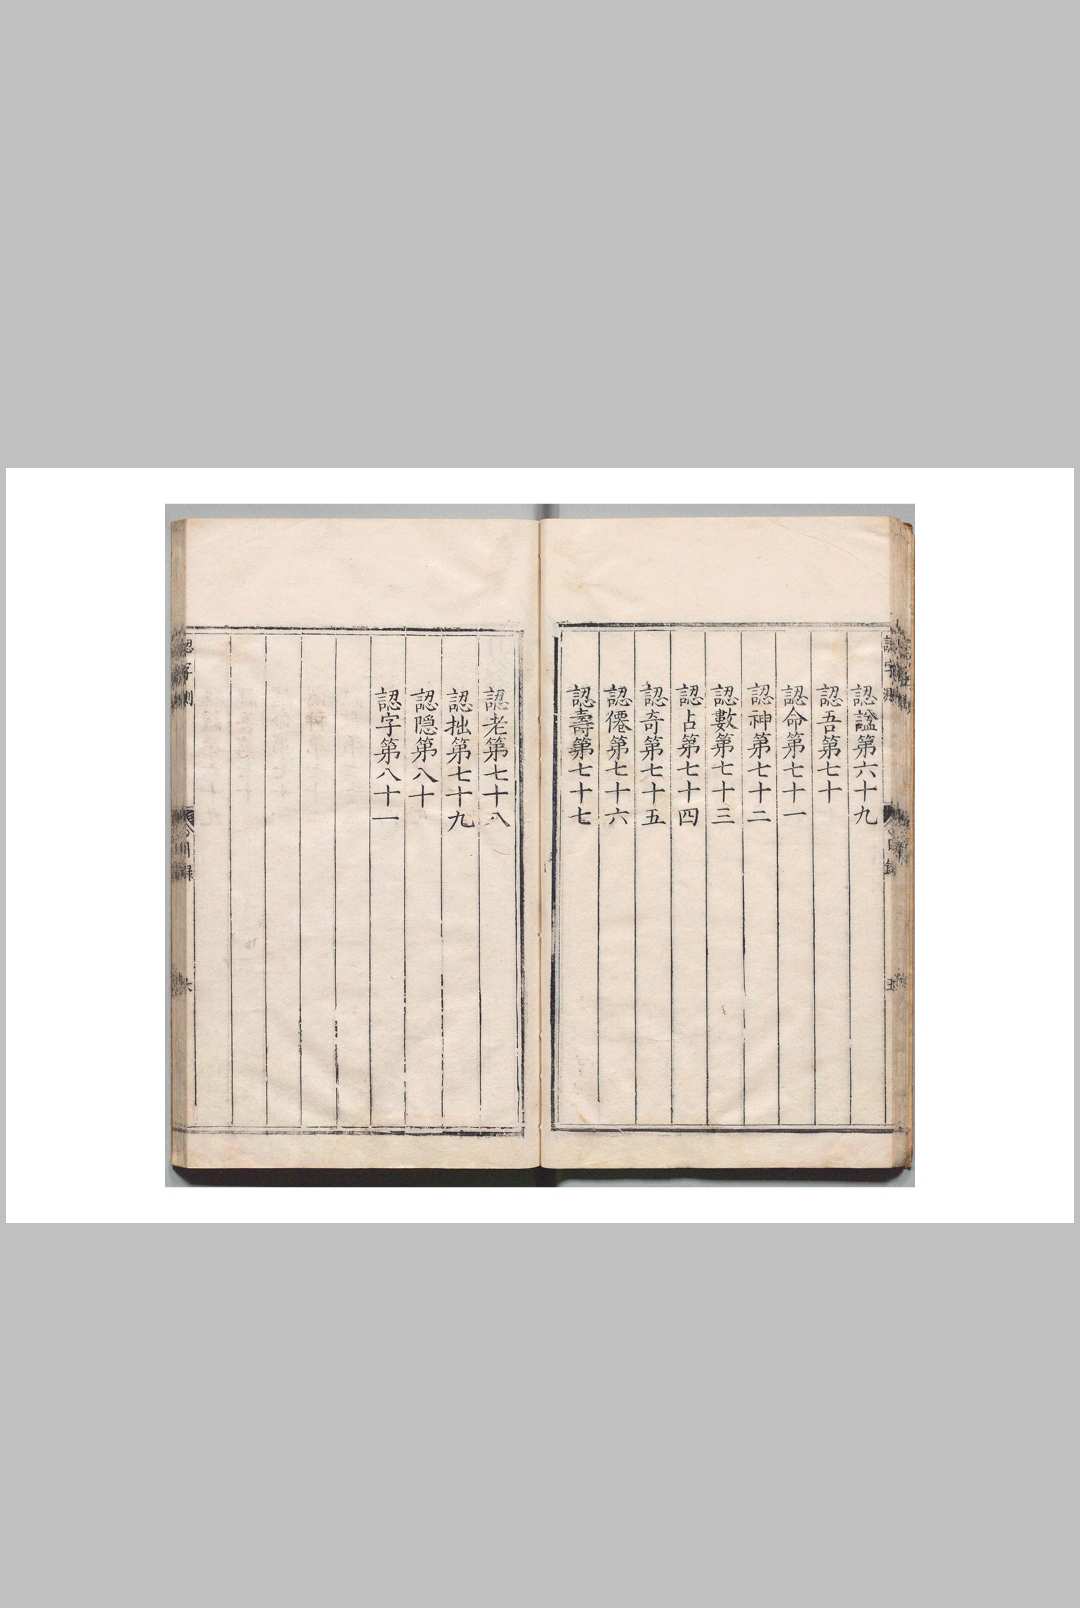 認謚第六十九
認吾第七十
認命第七十一
認神第七十二
認數第七十三
認占第七十四
認奇第七十五
認僊第七十六
認壽第七十七
認老第七十八
認拙第七十九
認隐第八十
認字第八十一
認字測
目録
六